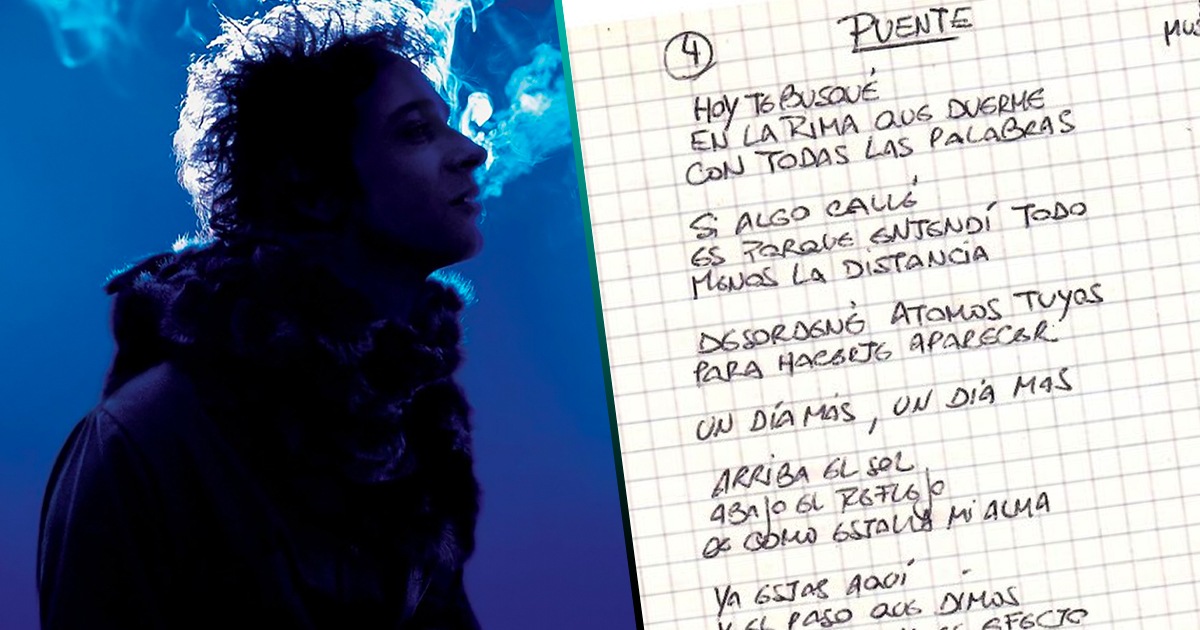 4
PUENTE
HOY TE BUSQUÉ
EN LA RIMA QUE DUERME
CON TODAS LAS PALABRAS
SI ALGO CALLÉ
ES PORQUE ENTENDÍ TODO
MENOS LA DISTANCIA
DESORDENÉ ATOMOS TUYOS
PARA HACERTE APARECER
UN DÍA MÁS, UN DÍA MAS
ARRIBA EL SOL
ABAJO EL REFLEJO
DE COMO ESTALLA MI ALMA
YA ESTAS AQUÍ
Y EL PASO QUE DIMOS
EFECTO